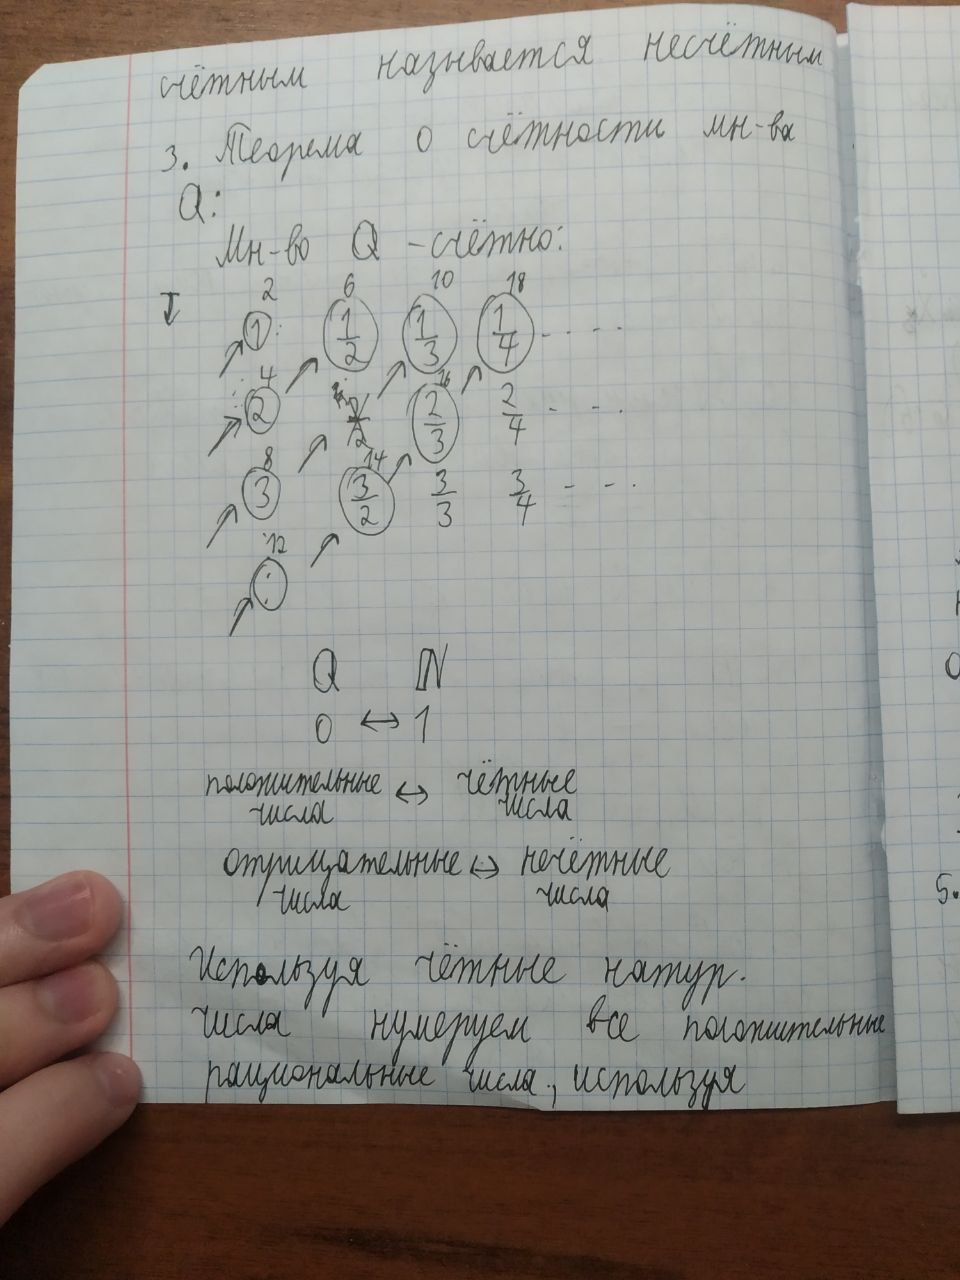 счётным называется несчётным
3. Теорема о счётности мн-ва
Q:
Мн-во Q - счётно:
2 6 10 18
1 1/2 1/3 1/4 - - - -
4 16
2 2/2 2/3 2/4 - - - .
8 14
3 3/2 3/3 3/4 - - - .
12
⋮
Q N
0 ↔ 1
положительные ↔ чётные
числа числа
отрицательные ↔ нечётные
числа числа
Используя чётные натур.
числа нумеруем все положительные
рациональные числа, используя
5.